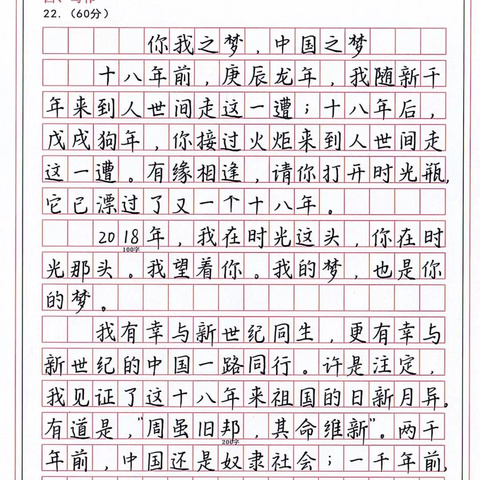 22.（60分）
你我之梦，中国之梦
十八年前，庚辰龙年，我随新千
年来到人世间走这一遭；十八年后，
戊戌狗年，你接过火炬来到人世间走
这一遭。有缘相逢，请你打开时光瓶，
它已漂过了又一个十八年。
2018年，我在时光这头，你在时
100字
光那头。我望着你。我的梦，也是你
的梦。
我有幸与新世纪同生，更有幸与
新世纪的中国一路同行。许是注定，
我见证了这十八年来祖国的日新月异。
有道是，“周虽旧邦，其命维新”。两千
200字
年前，中国还是奴隶社会；一千年前，